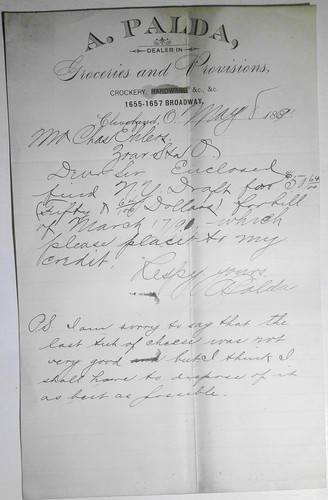 A. PALDA,
DEALER IN
Groceries and Provisions,
CROCKERY, HARDWARE &c., &c.
1655-1657 BROADWAY,
Cleveland, O. May 5 189
Mr Chas Ehlers,
Zoar Sta O.
Dear sir Enclosed
find N.Y. Draft for $50 64/100
(Fifty & 64/100 Dollars) for bill
of March 17/90, which
please place to my
credit.
Respy yours
A Palda
P.S. I am sorry to say that the
last tub of cheese was not
very good and but I think I
shall have to dispose of it
as best as possible.